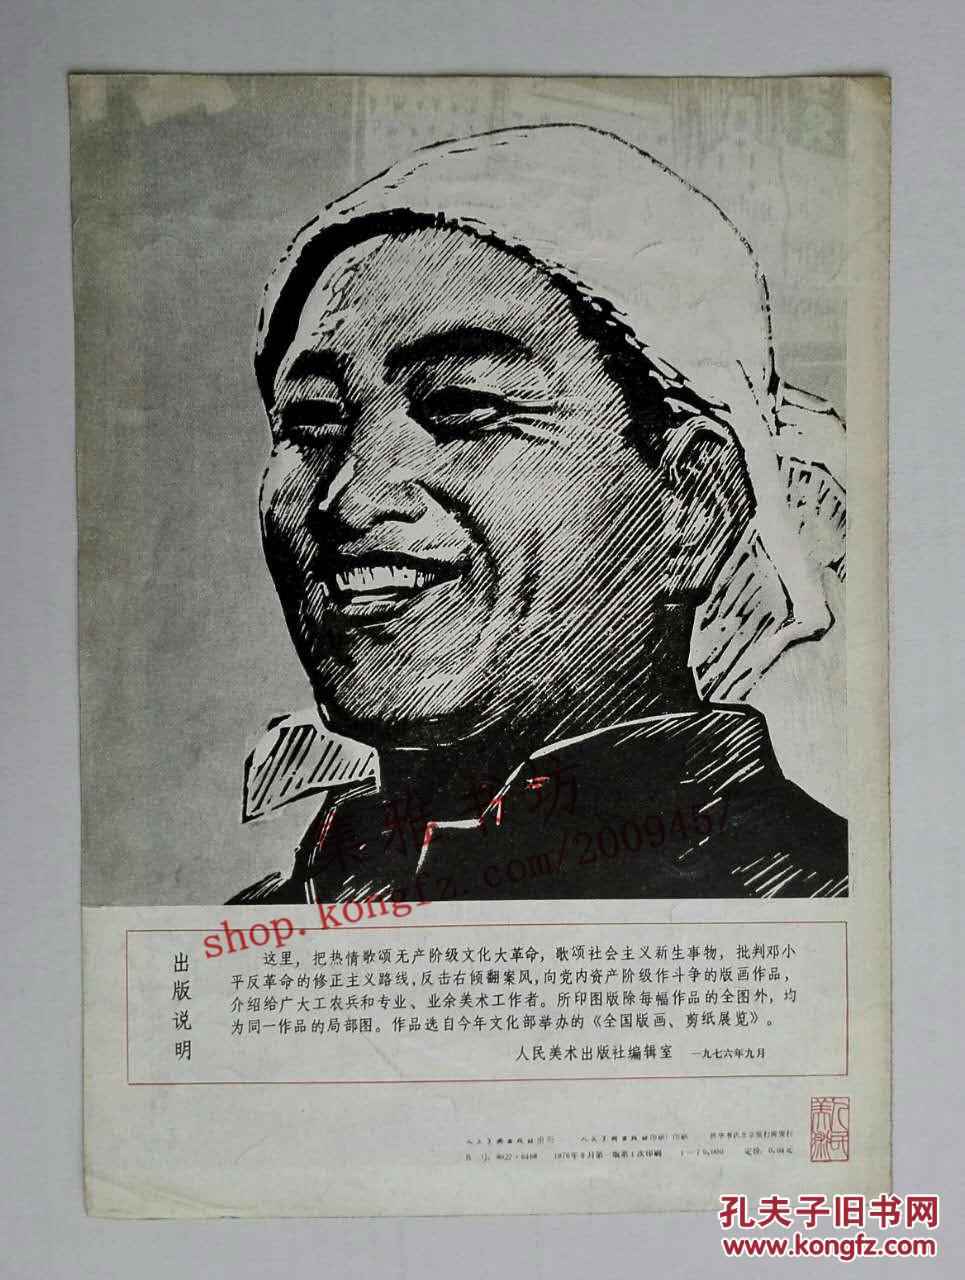 集雅书坊
shop.kongfz.com/200945/
出版说明
这里，把热情歌颂无产阶级文化大革命，歌颂社会主义新生事物，批判邓小
平反革命的修正主义路线，反击右倾翻案风，向党内资产阶级作斗争的版画作品，
介绍给广大工农兵和专业、业余美术工作者。所印图版除每幅作品的全图外，均
为同一作品的局部图。作品选自今年文化部举办的《全国版画、剪纸展览》。
人民美术出版社编辑室 一九七六年九月
人民美术出版社出版 人民美术出版社印刷厂印刷 新华书店北京发行所发行
1976年9月第一版第1次印刷
孔夫子旧书网
www.kongfz.com